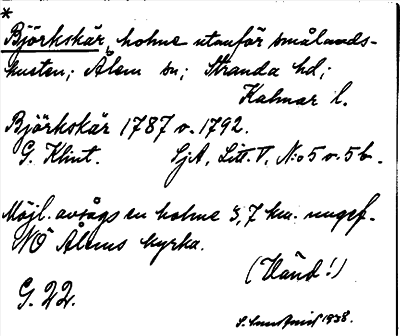 *
Björkskär, holme utanför smålands-
kusten; Ålem sn; Stranda hd;
Kalmar l.
Björkskär 1787 o. 1792.
G. Klint. SjA, Litt. V, N:o 5 o. 5 b.
Möjl. avsågs en holme 3,7 km. ungef.
NÖ Ålems kyrka.
(Vänd!)
G. 22.
1938.